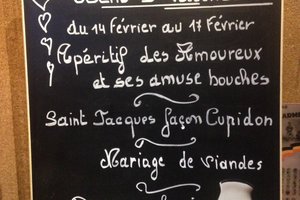 du 14 Février au 17 Février
Apéritif des Amoureux
et ses amuse bouches
Saint Jacques façon Cupidon
Mariage de Viandes